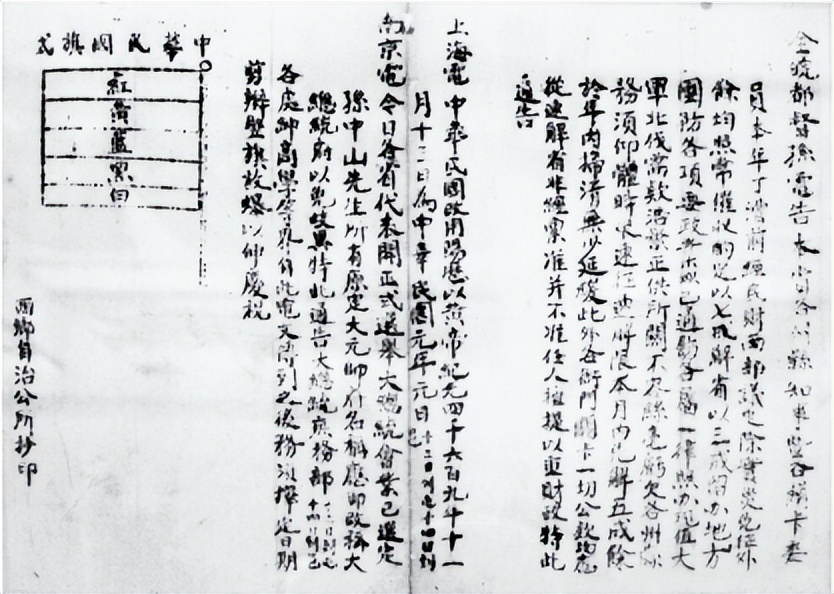 全皖都督孫電告本省各州縣知事暨各釐卡委
員本年丁漕前經民財兩部議定除實災免征外
餘均照常催收酌定以七成解省以三成留办地方
團防各項要政業已通飭各屬一律照办現值大
軍北伐需款浩繁正供所關不容絲毫虧欠各州縣
務須仰體時艱速征速解限本月內先解五成餘
於年內掃清毋少延緩此外各衙門關卡一切公款均應
從速解省非經禀准并不准任人擅提以重財政特此
通告
上海電 中華民國改用陽曆以黃帝紀元四千六百九年十一
月十三日為中華民國元年元旦
南京電 今日各省代表開正式選舉大總統會業已選定
孫中山先生所有原定大元帥府名稱應即改稱大
總統府以免歧異特此通告大總統庶務部
各處紳商學等界有此電文傳到之後務須擇定日期
剪辮豎旗放爆以伸慶祝
中華民國旗式
紅
黃
藍
黑
白
西鄉自治公所抄印